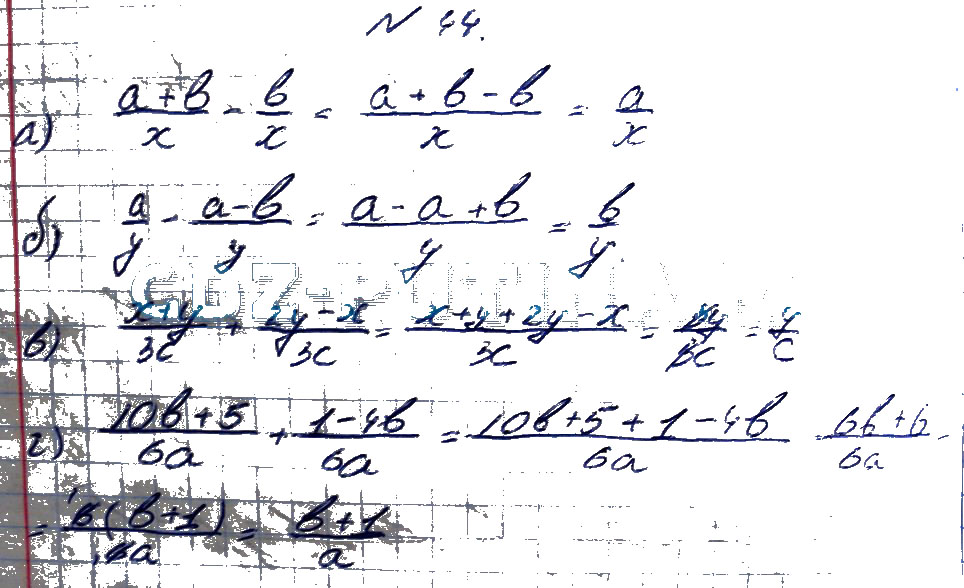 N 44.
а) (a+b)/x - b/x = (a+b-b)/x = a/x
б) a/y - (a-b)/y = (a-a+b)/y = b/y.
в) (x+y)/3c + (2y-x)/3c = (x+y+2y-x)/3c = 3y/3c = y/c
г) (10b+5)/6a + (1-4b)/6a = (10b+5+1-4b)/6a (6b+6)/6a -
= 6(b+1)/6a = (b+1)/a